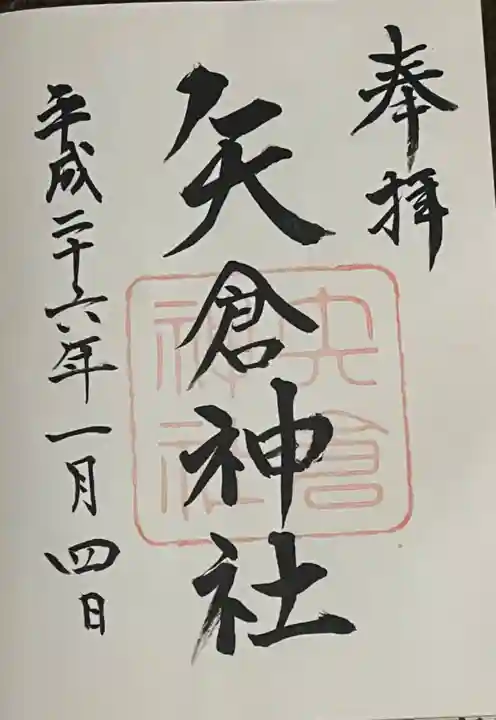 奉拝
矢倉神社
矢倉
神社
平成二十六年一月四日